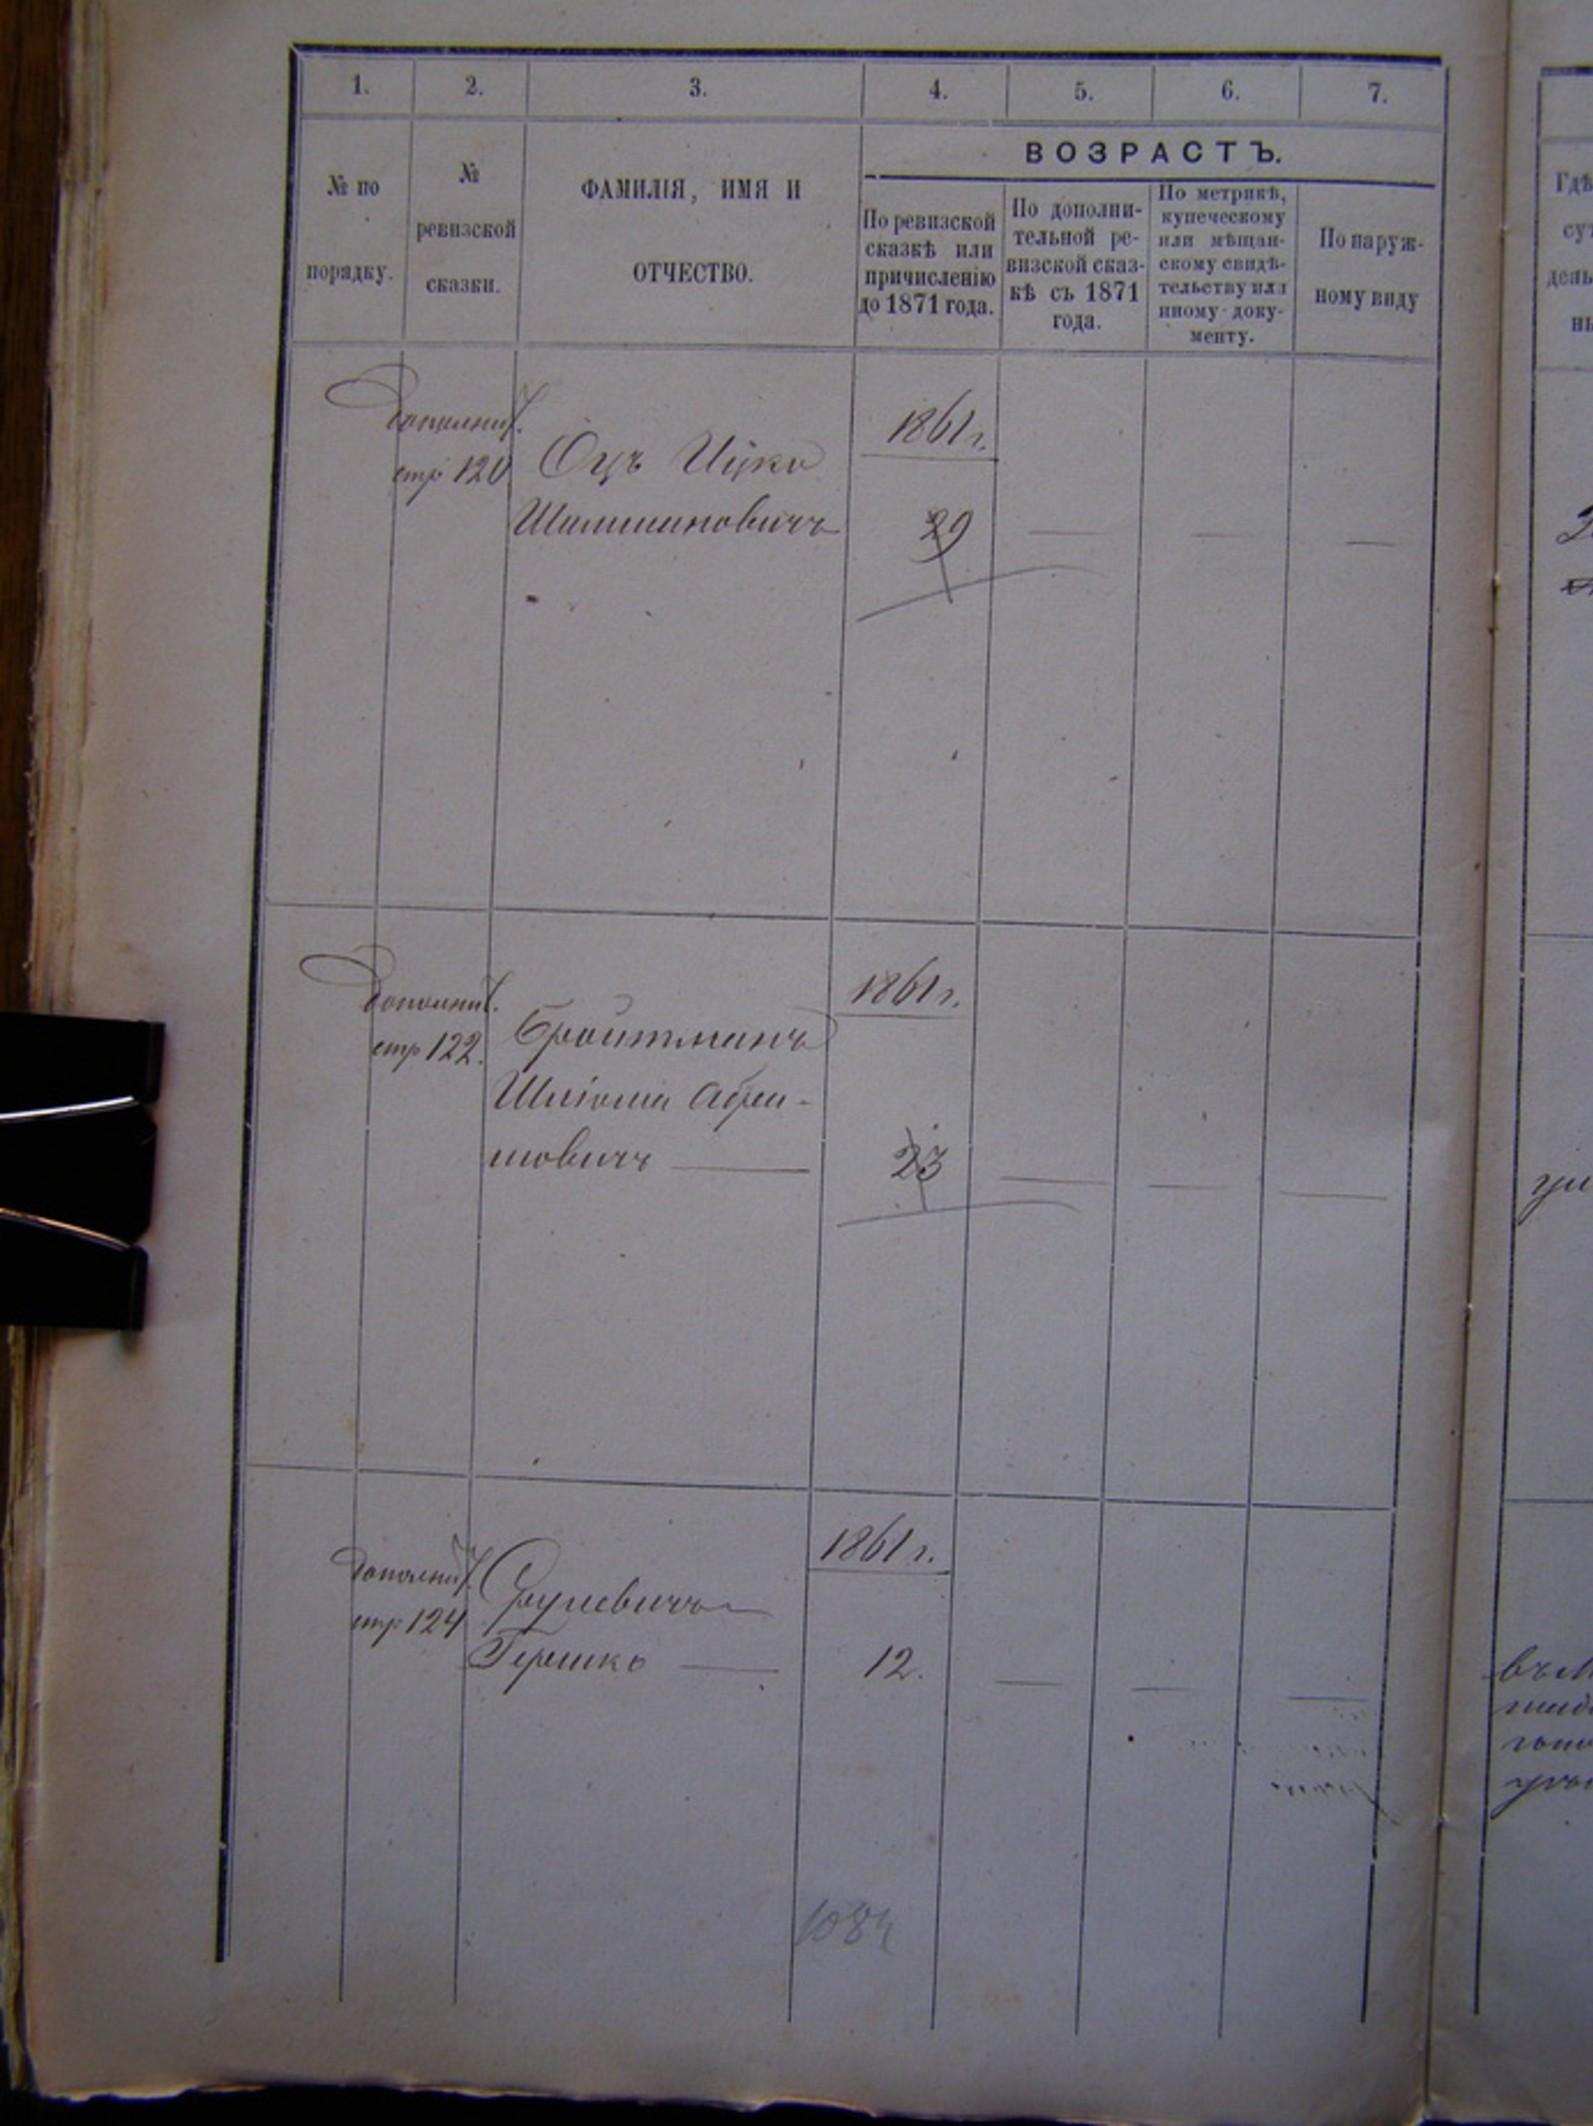 1. 2. 3. 4. 5. 6. 7.
№ по
порядку.
№
ревизской
сказки.
ФАМИЛІЯ, ИМЯ И
ОТЧЕСТВО.
ВОЗРАСТЪ.
По ревизской
сказкѣ или
причисленію
до 1871 года.
По дополни-
тельной ре-
визской сказ-
кѣ съ 1871
года.
По метрикѣ,
купеческому
или мѣщан-
скому свидѣ-
тельству или
иному доку-
менту.
По наруж-
ному виду
Дополнит.
стр 120
Оцъ Ицко
1861 г.
29
Дополнит.
стр 122.
Бройтманъ
Шліома Абра-
мовичъ
1861 г.
23
Дополнит.
стр 124
Срулевичъ
Гершко
1861 г.
12.